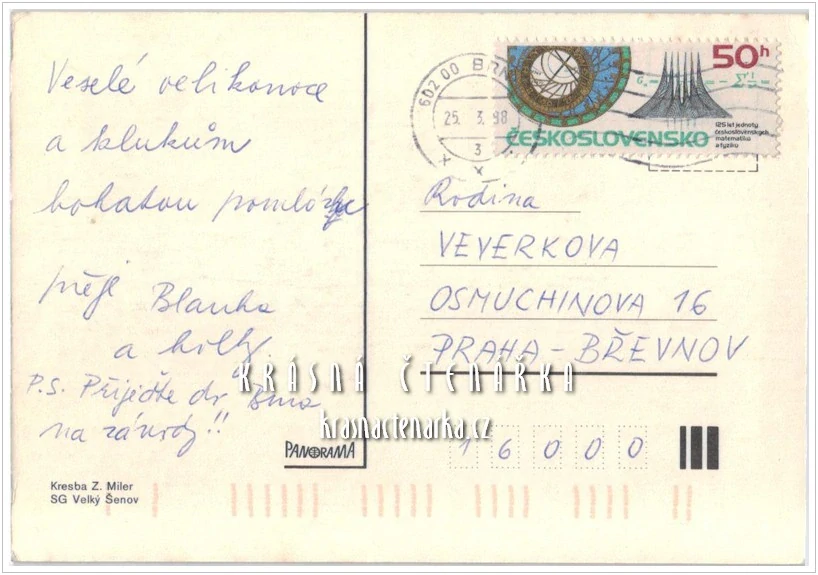 Veselé velikonoce
a klukům
bohatou pomlázku
přeje Blanka
a holky.
P.S. Přijeďte do Brna
na závody!!
602 00 BRN
25. 3. 88
3
50h
ČESKOSLOVENSKO
125 let jednoty
československých
matematiků
a fyziků
Rodina
VEVERKOVA
OSMUCHINOVA 16
PRAHA - BŘEVNOV
KRÁSNÁ ČTENÁŘKA
krasnactenarka.cz
16000
PANORAMA
Kresba Z. Miler
SG Velký Šenov